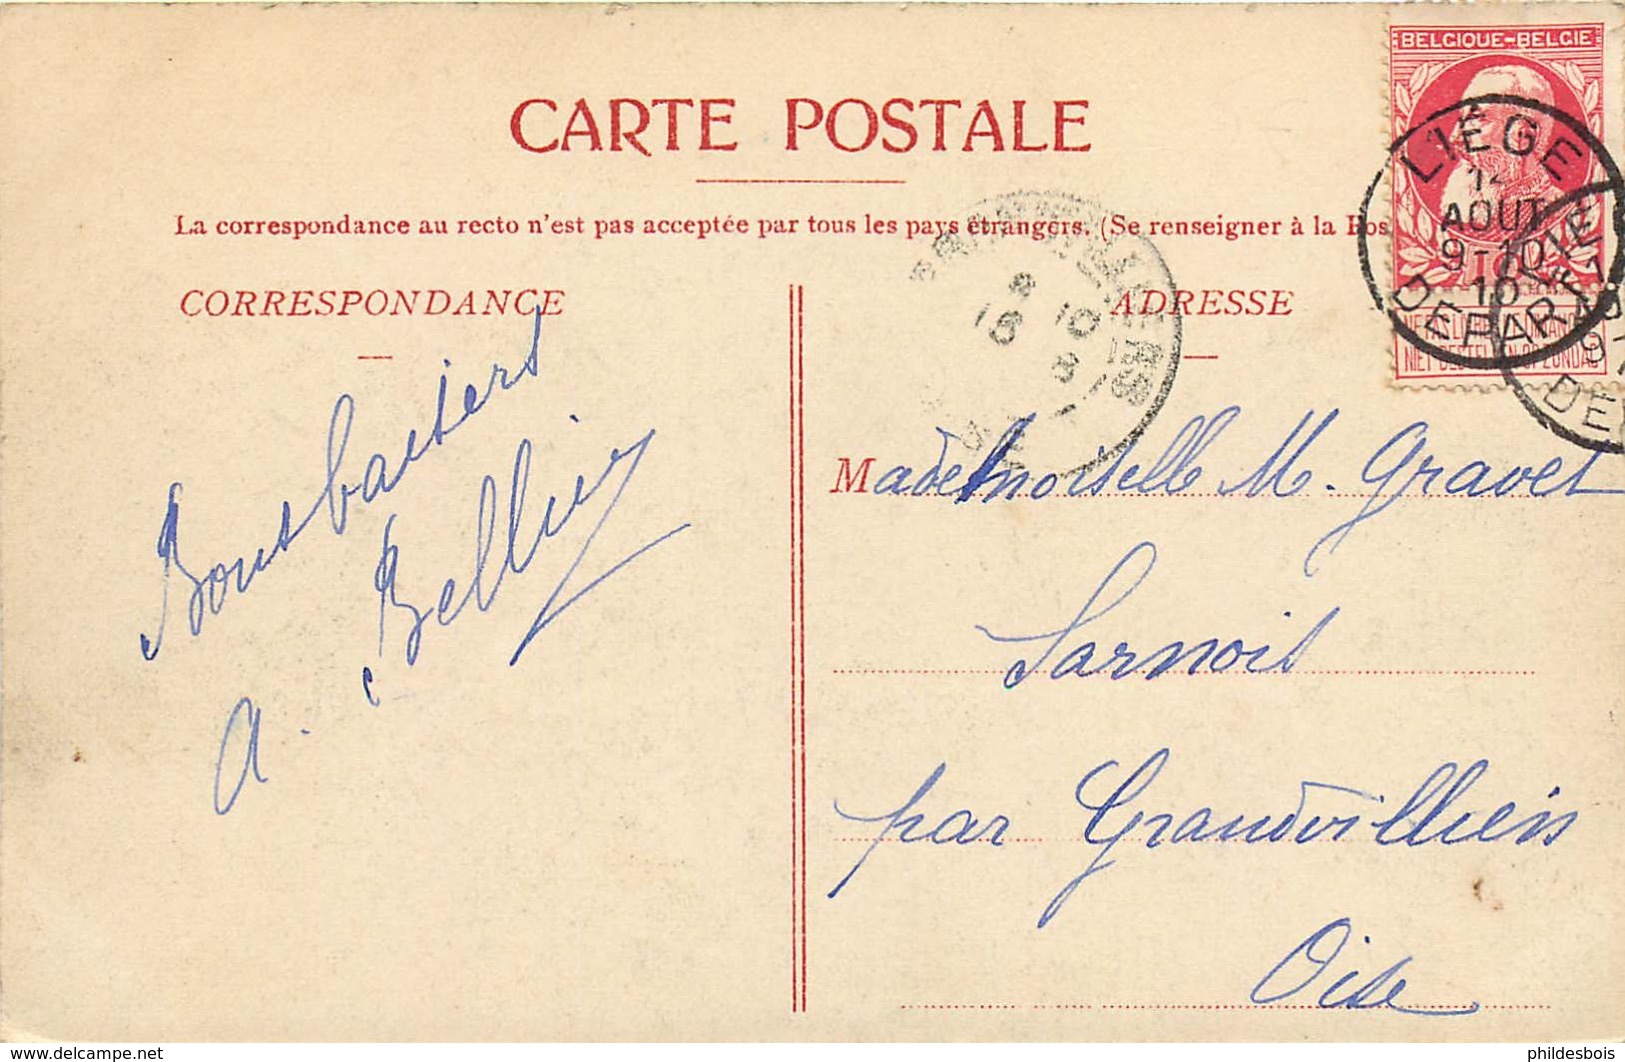 BELGIQUE-BELGIE
CARTE POSTALE
LIÉGE
AOUT
9-10
10
DEPART
La correspondance au recto n'est pas acceptée par tous les pays étrangers. (Se renseigner à la Pos
CORRESPONDANCE
ADRESSE
Bons baisers
A. Bellier
Mademoiselle M. Gravet
Sarnois
par Grandvilliers
Oise
www.delcampe.net
phildesbois